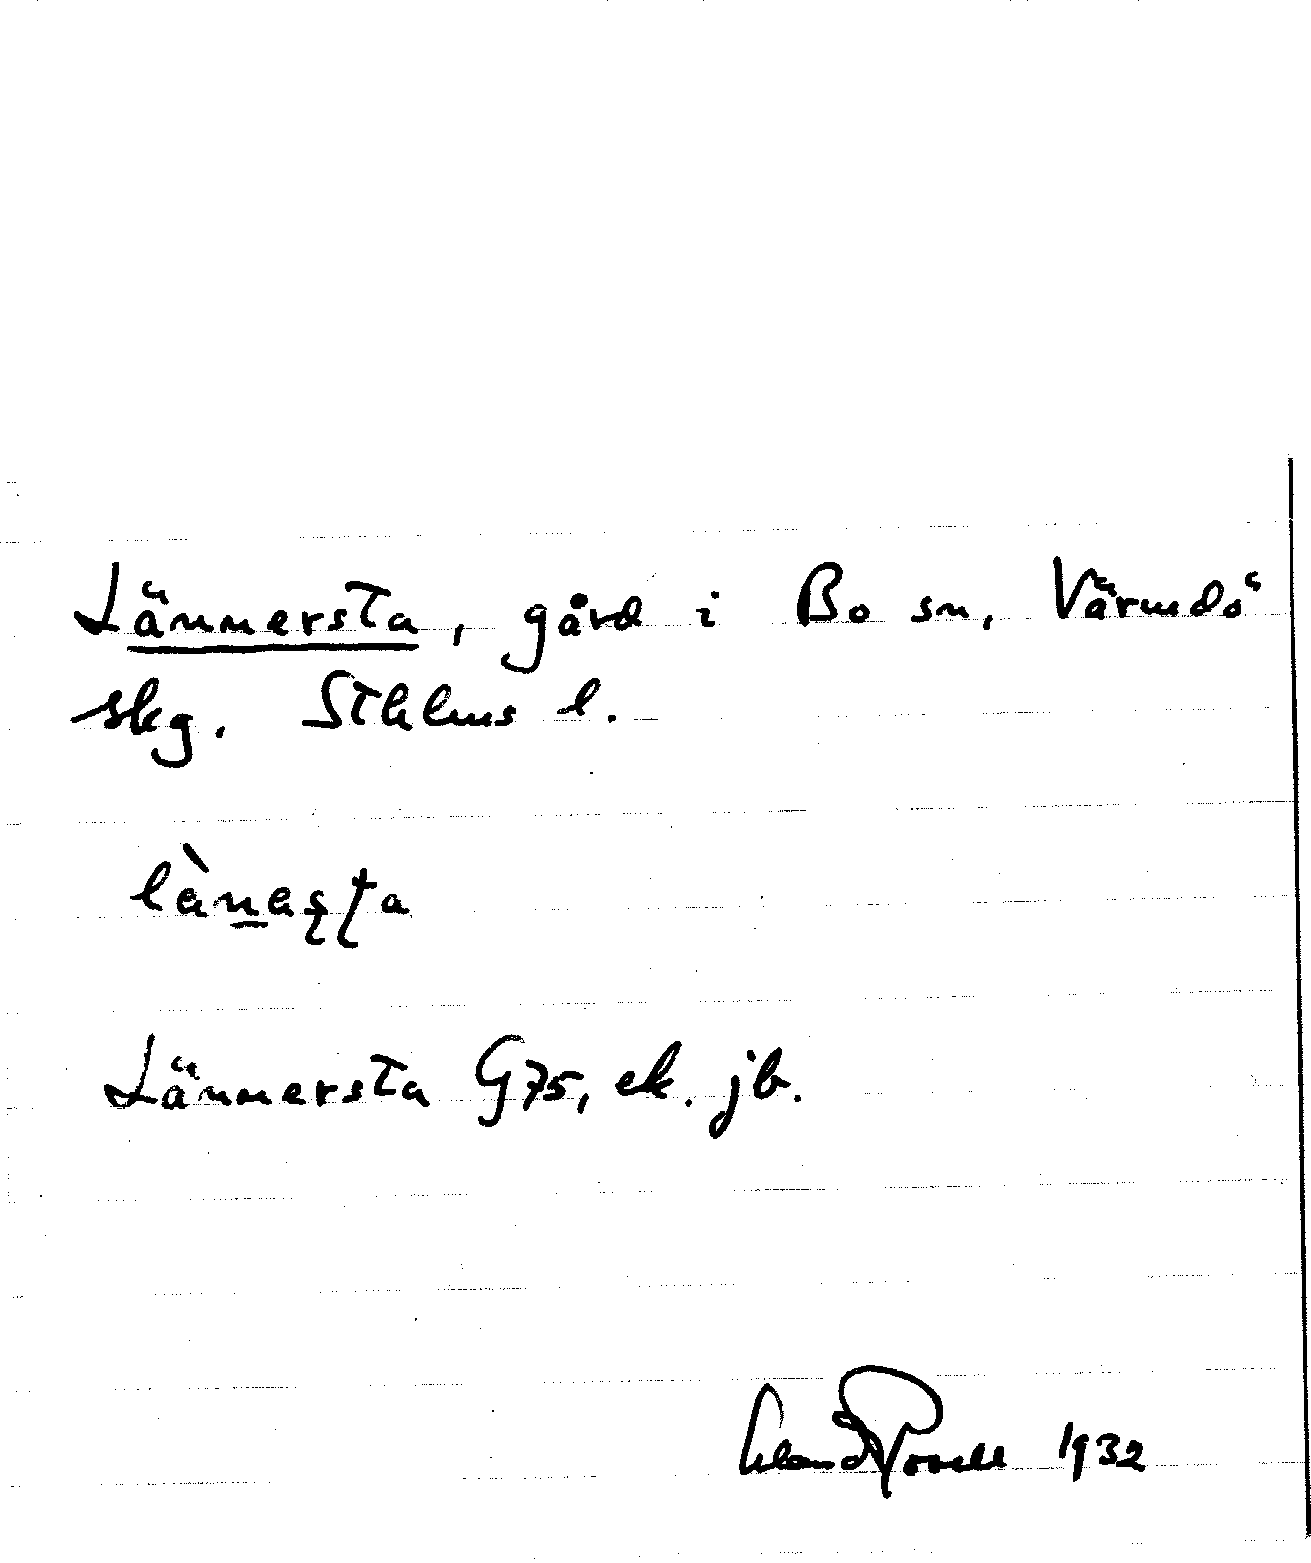 Lännersta, gård i Bo sn, Värmdö
skg. Sthlms l.
Lännersta G75, ek. jb.
1932